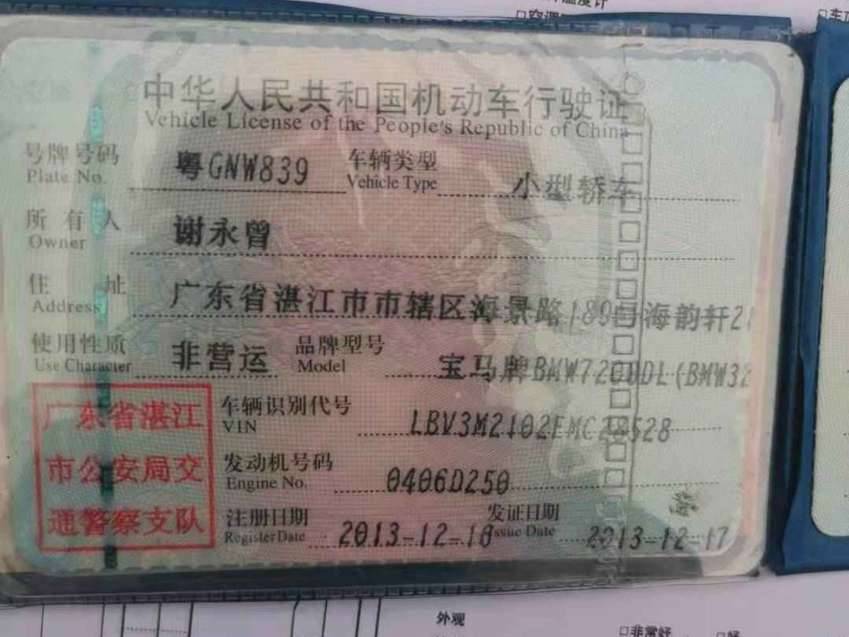 中华人民共和国机动车行驶证
Vehicle License of the People's Republic of China
号牌号码 粤GNW839 车辆类型 小型轿车
Plate No. Vehicle Type
所有人 谢永曾
Owner
住址 广东省湛江市市辖区海景路189号海韵轩
Address
使用性质 非营运 品牌型号 宝马牌
Use Character Model
车辆识别代号
VIN
发动机号码 0406D250
Engine No.
注册日期 2013-12-16 发证日期 2013-12-17
Register Date Issue Date
广东省湛江
市公安局交
通警察支队
外观
□非常好